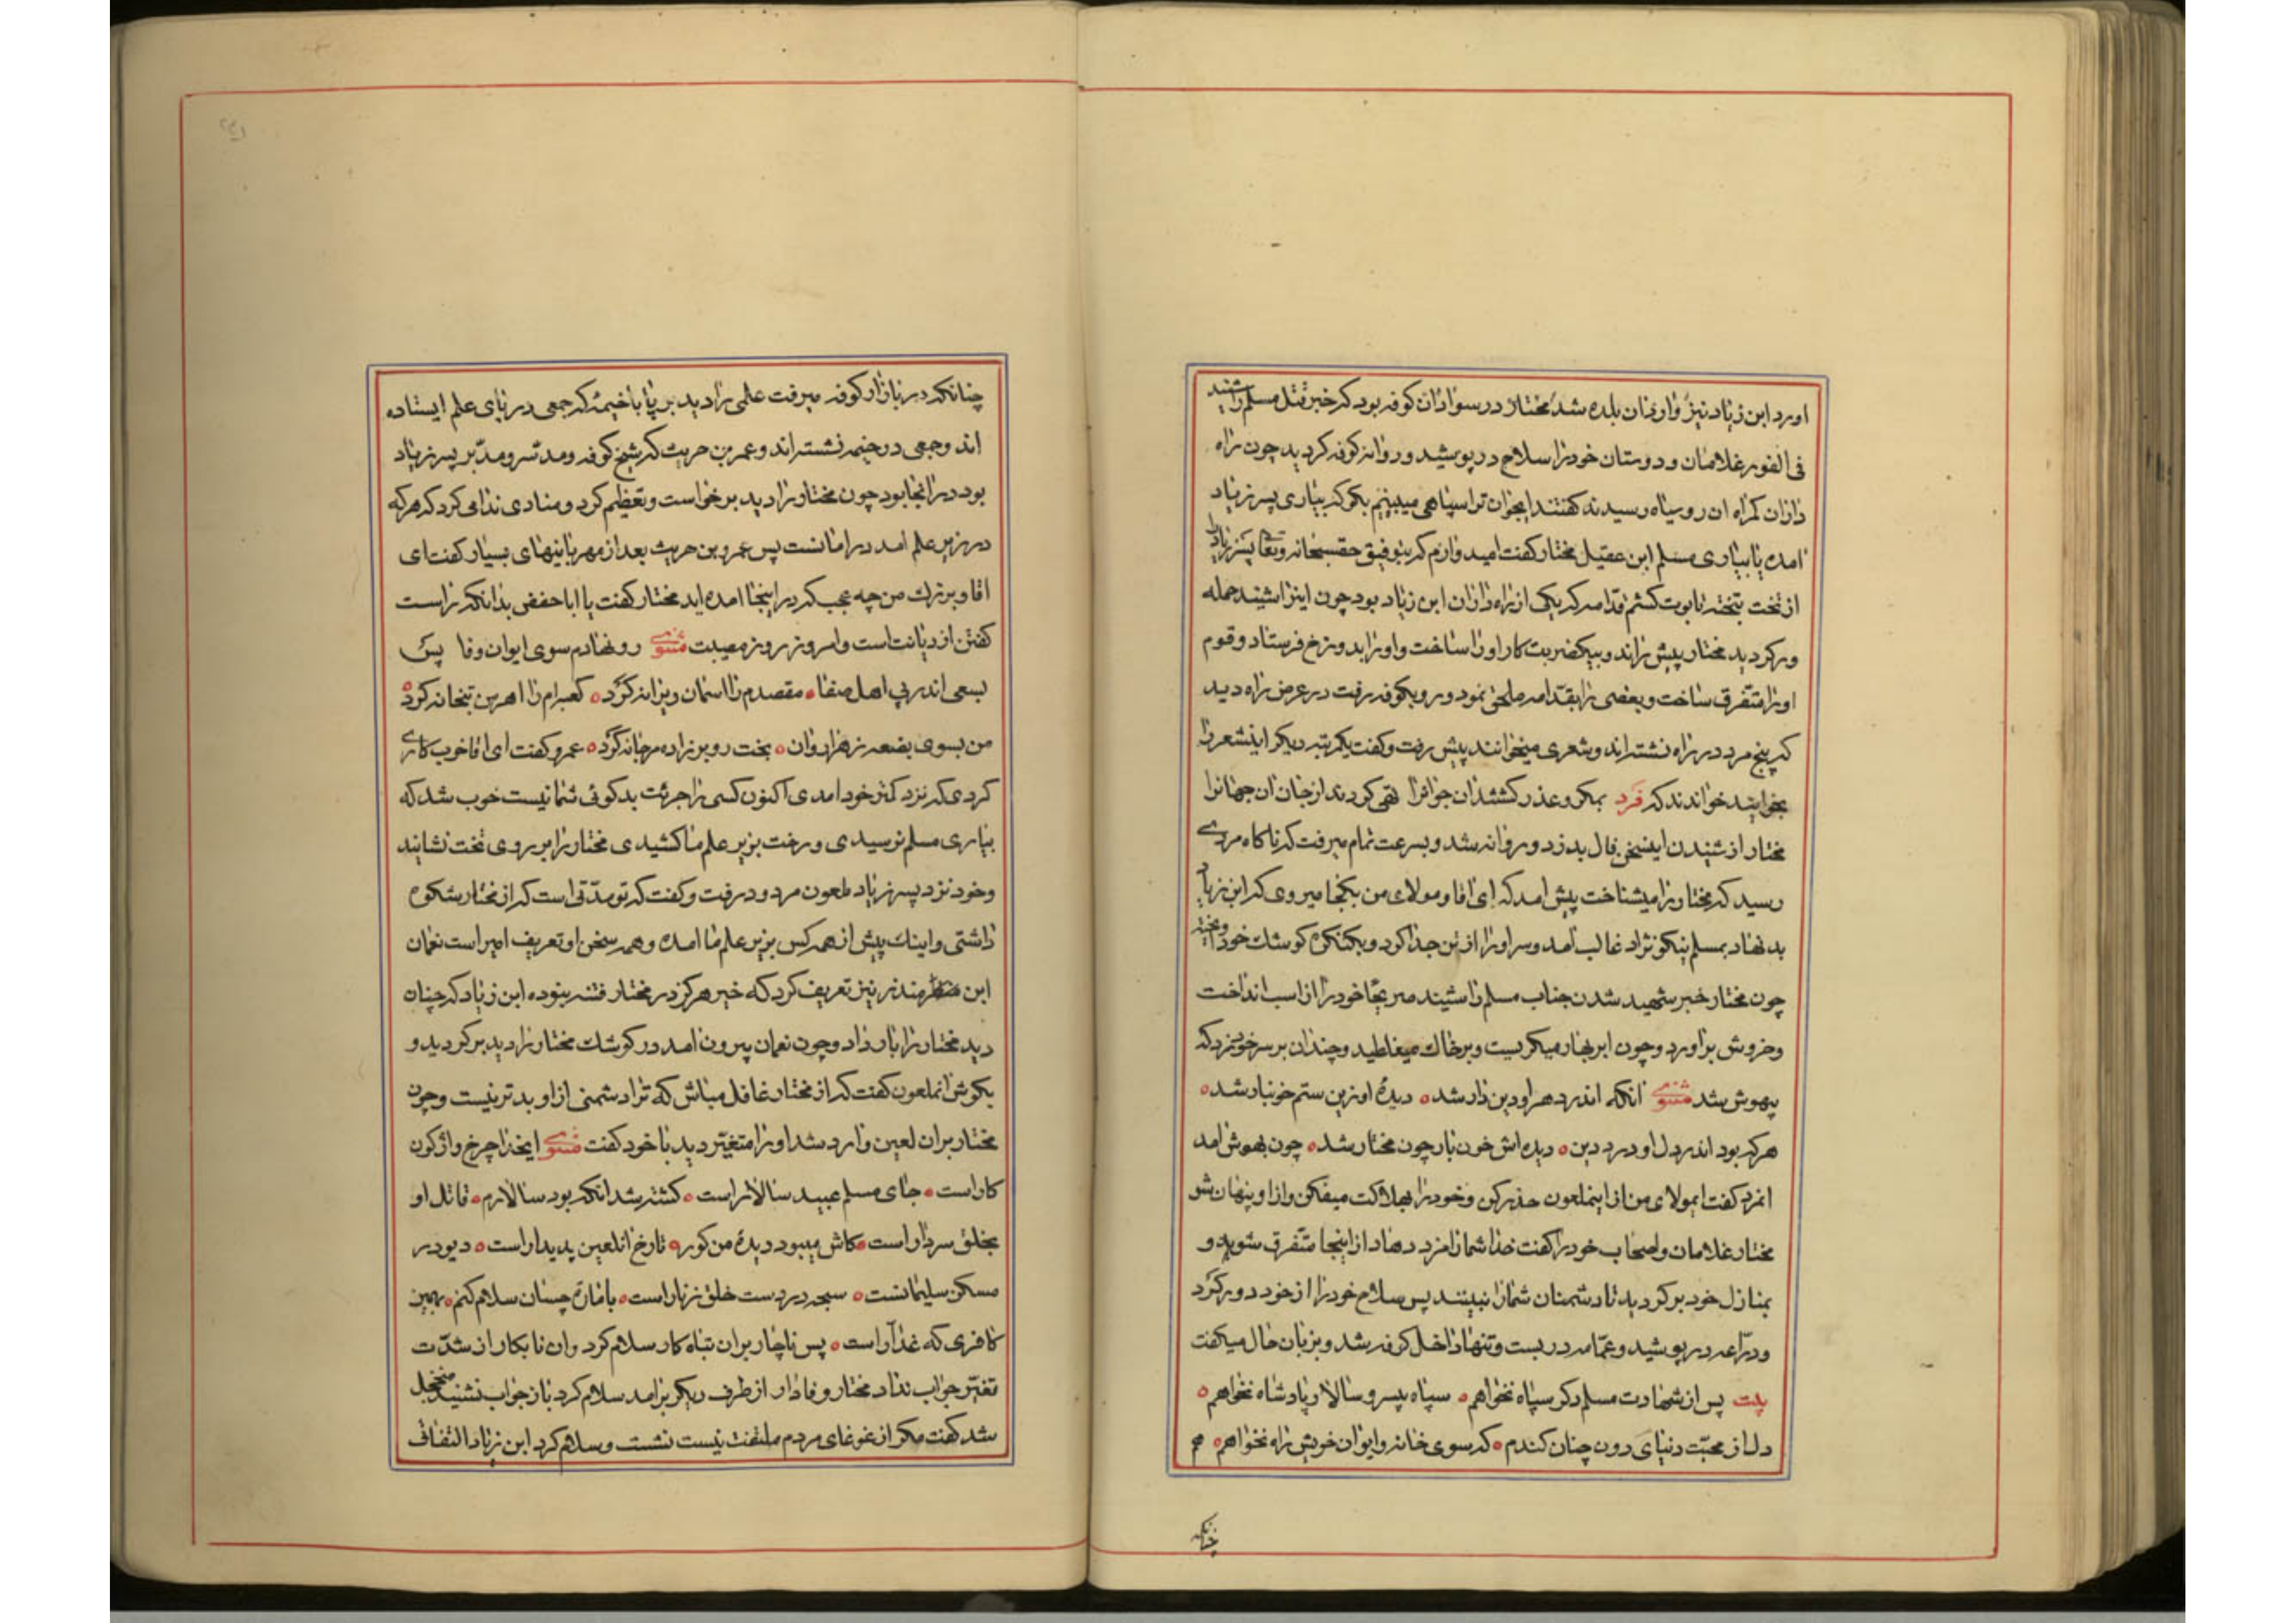 اورد ابن زیاد نیز وارد ان بلده شد مختار در سواد ان کوفه بود که خبر قتل مسلم را شنید
فی الفور غلامان و دوستان خود را سلاح در پوشید و روانه کوفه کردید چون راه
داران کمراه ان روسیاه رسیدند کفتند ایجوان ترا سپاهی میبینم بکو که بیاری پسر زیاد
امده یا بیاری مسلم ابن عقیل مختار کفت امید وارم که بتوفیق حقسبحانه و تعالی پسر زیاد را
از تخت بتخته تابوت کشم قدامه که یکی از راه داران ابن زیاد بود چون اینرا شنید حمله
ور کردید مختار پیش راند و بیکضربت کار او را ساخت و او را بدوزخ فرستاد و قوم
او را متفرق ساخت و بعضی را بقدامه ملحق نمود و رو بکوفه رفت در عرض راه دید
که پنج مرد در راه نشسته اند و شعری میخوانند پیش رفت و کفت یکمرتبه دیکر اینشعر را
بخوانید خواندند که فرد بمکر و عذر کشتند ان جوانرا تهی کردند از جان ان جهانرا
مختار از شنیدن اینسخن فال بد زد و روانه شد و بسرعت تمام میرفت که ناکاه مردی
رسید که مختار را میشناخت پیش امد که ای اقا و مولای من بکجا میروی که ابن زیاد
بد نهاد بمسلم نیکو نژاد غالب امد و سر او را از تن جدا کرد و بکنکره کوشک خود اویخته
چون مختار خبر شهید شدن جناب مسلم را شنید صریحا خود را از اسب انداخت
و خروش براورد و چون ابر بهار میکریست و بر خاک میغلطید و چندان بر سر خود زد که
بیهوش شد مثنوی انکه اندر دهر او دین دار شد دیدۀ او زین ستم خونبار شد
هر که بود اندر دل او درد دین دیده اش خون بار چون مختار شد چون بهوش امد
انمرد کفت ایمولای من از اینملعون حذر کن و خود را بهلاکت میفکن و از او پنهان شو
مختار غلامان و اصحاب خود را کفت خدا شما را مزد دهاد از اینجا متفرق شوید و
بمنازل خود بر کردید تا دشمنان شما را نبینند پس سلاح خود را از خود دور کرد
و دراعه در پوشید و عمامه در بست و تنها داخل کوفه شد و بزبان حال میکفت
بیت پس از شهادت مسلم دکر سپاه نخواهم سپاه بیسر و سالار و پادشاه نخواهم
دل از محبت دنیای دون چنان کندم که سوی خانه و ایوان خویش راه نخواهم هم
چنانکه
چنانکه در بازار کوفه میرفت علمی را دید بر پا با خیمۀ که جمعی در پای علم ایستاده
اند و جمعی در خیمه نشسته اند و عمر بن حریث که شیخ کوفه و مدسر و مدبر پسر زیاد
بود در انجا بود چون مختار را دید برخواست و تعظیم کرد و منادی ندا می کرد که هر که
در زیر علم امد در امانست پس عمرو بن حریث بعد از مهربانیهای بسیار کفت ای
اقا و بزرک من چه عجب که در اینجا امده اید مختار کفت یا اباحفص بدانکه راست
کفتن از دیانت است و امروز روز مصیبت مثنوی رو نهادم سوی ایوان وفا پس
بسعی اندر پی اهل صفا مقصدم را اسمان ویرانه کرد کعبرام را اهرمن بتخانه کرد
من بسوی بضعه زهرا روان بخت رو بر زاده مرجانه کرد عمرو کفت ای اقا خوب کاری
کردی که نزد کمتر خود امدی اکنون کسی را جرئت بدکوئی شما نیست خوب شد که
بیاری مسلم نرسیدی و رخت بزیر علم ما کشیدی مختار را بر روی تخت نشانید
و خود نزد پسر زیاد ملعون مردود رفت و کفت که تو مدتی است که از مختار شکوه
داشتی و اینک پیش از همه کس بزیر علم ما امده و همه سخن او تعریف امیر است نعمان
ابن منذر نیز تعریف کرد که خیر هرکز در مختار فتنه نبوده ابن زیاد که چنان
دید مختار را بار داد و چون نعمان بیرون امد در کوشک مختار را دید بر کردید و
بکوش انملعون کفت که از مختار غافل مباش که ترا دشمنی از او بدتر نیست و چون
مختار بر ان لعین وارد شد او را متغیر دید با خود کفت مثنوی ایخدا چرخ واژکون
کار است جای مسلم عبید سالار است کشته شد انکه بود سالارم قاتل او
بخلق سردار است کاش میبود دیدۀ من کور تا رخ انلعین پدیدار است دیو در
مسکن سلیمانست سبحه در دست خلق زنار است بامان چسان سلام کنم بهمین
کافری که غدار است پس ناچار بر ان تباه کار سلام کرد و ان نابکار از شدت
تغیر جواب نداد مختار وفادار از طرف دیکر برامد سلام کرد باز جواب نشنید منخجل
شد کفت مکر از غوغای مردم ملتفت نیست نشست و سلام کرد ابن زیاد التفات